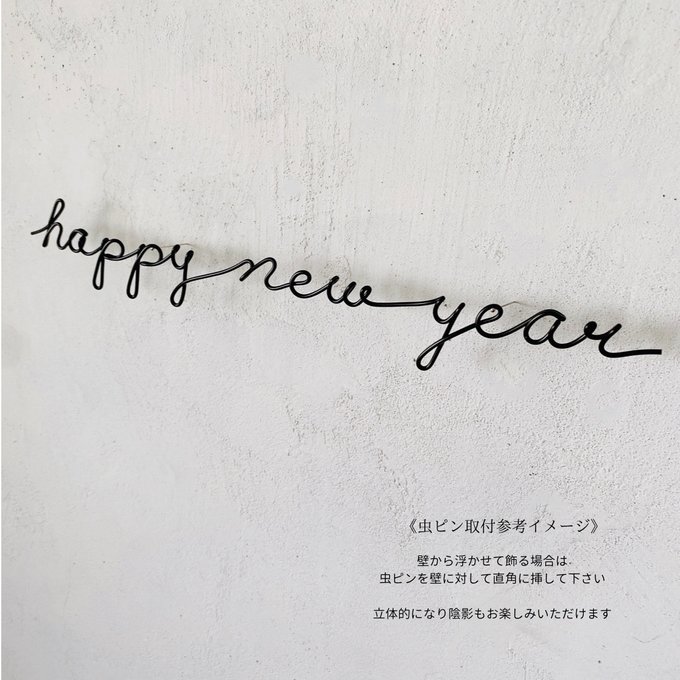 happy new year
《虫ピン取付参考イメージ》
壁から浮かせて飾る場合は
虫ピンを壁に対して直角に挿して下さい
立体的になり陰影もお楽しみいただけます